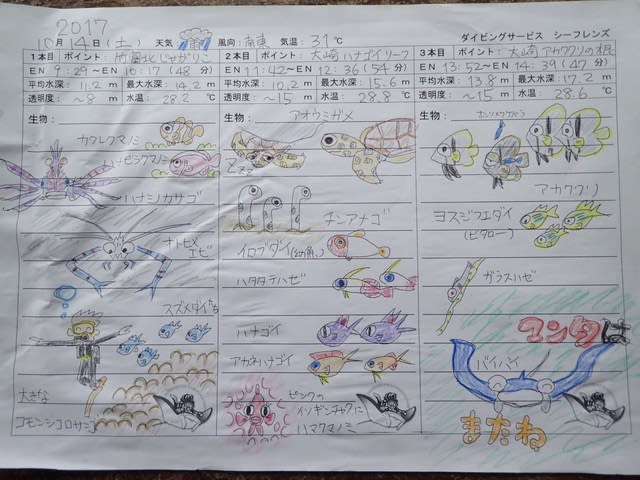 2017
10月14日(土) 天気 風向: 南東 気温: 31℃ ダイビングサービス シーフレンズ
1本目 ポイント: 竹富北じゃがりこ
EN 9:29~EN 10:17(48分)
平均水深: 11.2m 最大水深: 14.2m
透明度: ~8m 水温: 28.2℃
生物:
カクレクマノミ
ハナビラクマノミ
ハナミノカサゴ
オトヒメエビ
スズメダイたち
大きな
コモンシコロサンゴ
2本目 ポイント: 大崎ハナゴイリーフ
EN 11:42~EN 12:36(54分)
平均水深: 10.2m 最大水深: 15.6m
透明度: ~15m 水温: 28.8℃
生物: アオウミガメ
Zzz
チンアナゴ
イロブダイ(幼魚)
ハタタテハゼ
ハナゴイ
アカネハナゴイ
ピンクの
イソギンチャクに
ハマクマノミ
3本目 ポイント: 大崎アカククリの根
EN 13:52~EN 14:39(47分)
平均水深: 13.8m 最大水深: 17.2m
透明度: ~15m 水温: 28.6℃
生物: ホンソメワケベラ
アカククリ
ヨスジフエダイ
(ビタロー)
ガラスハゼ
マンタは
バイバイ
またね